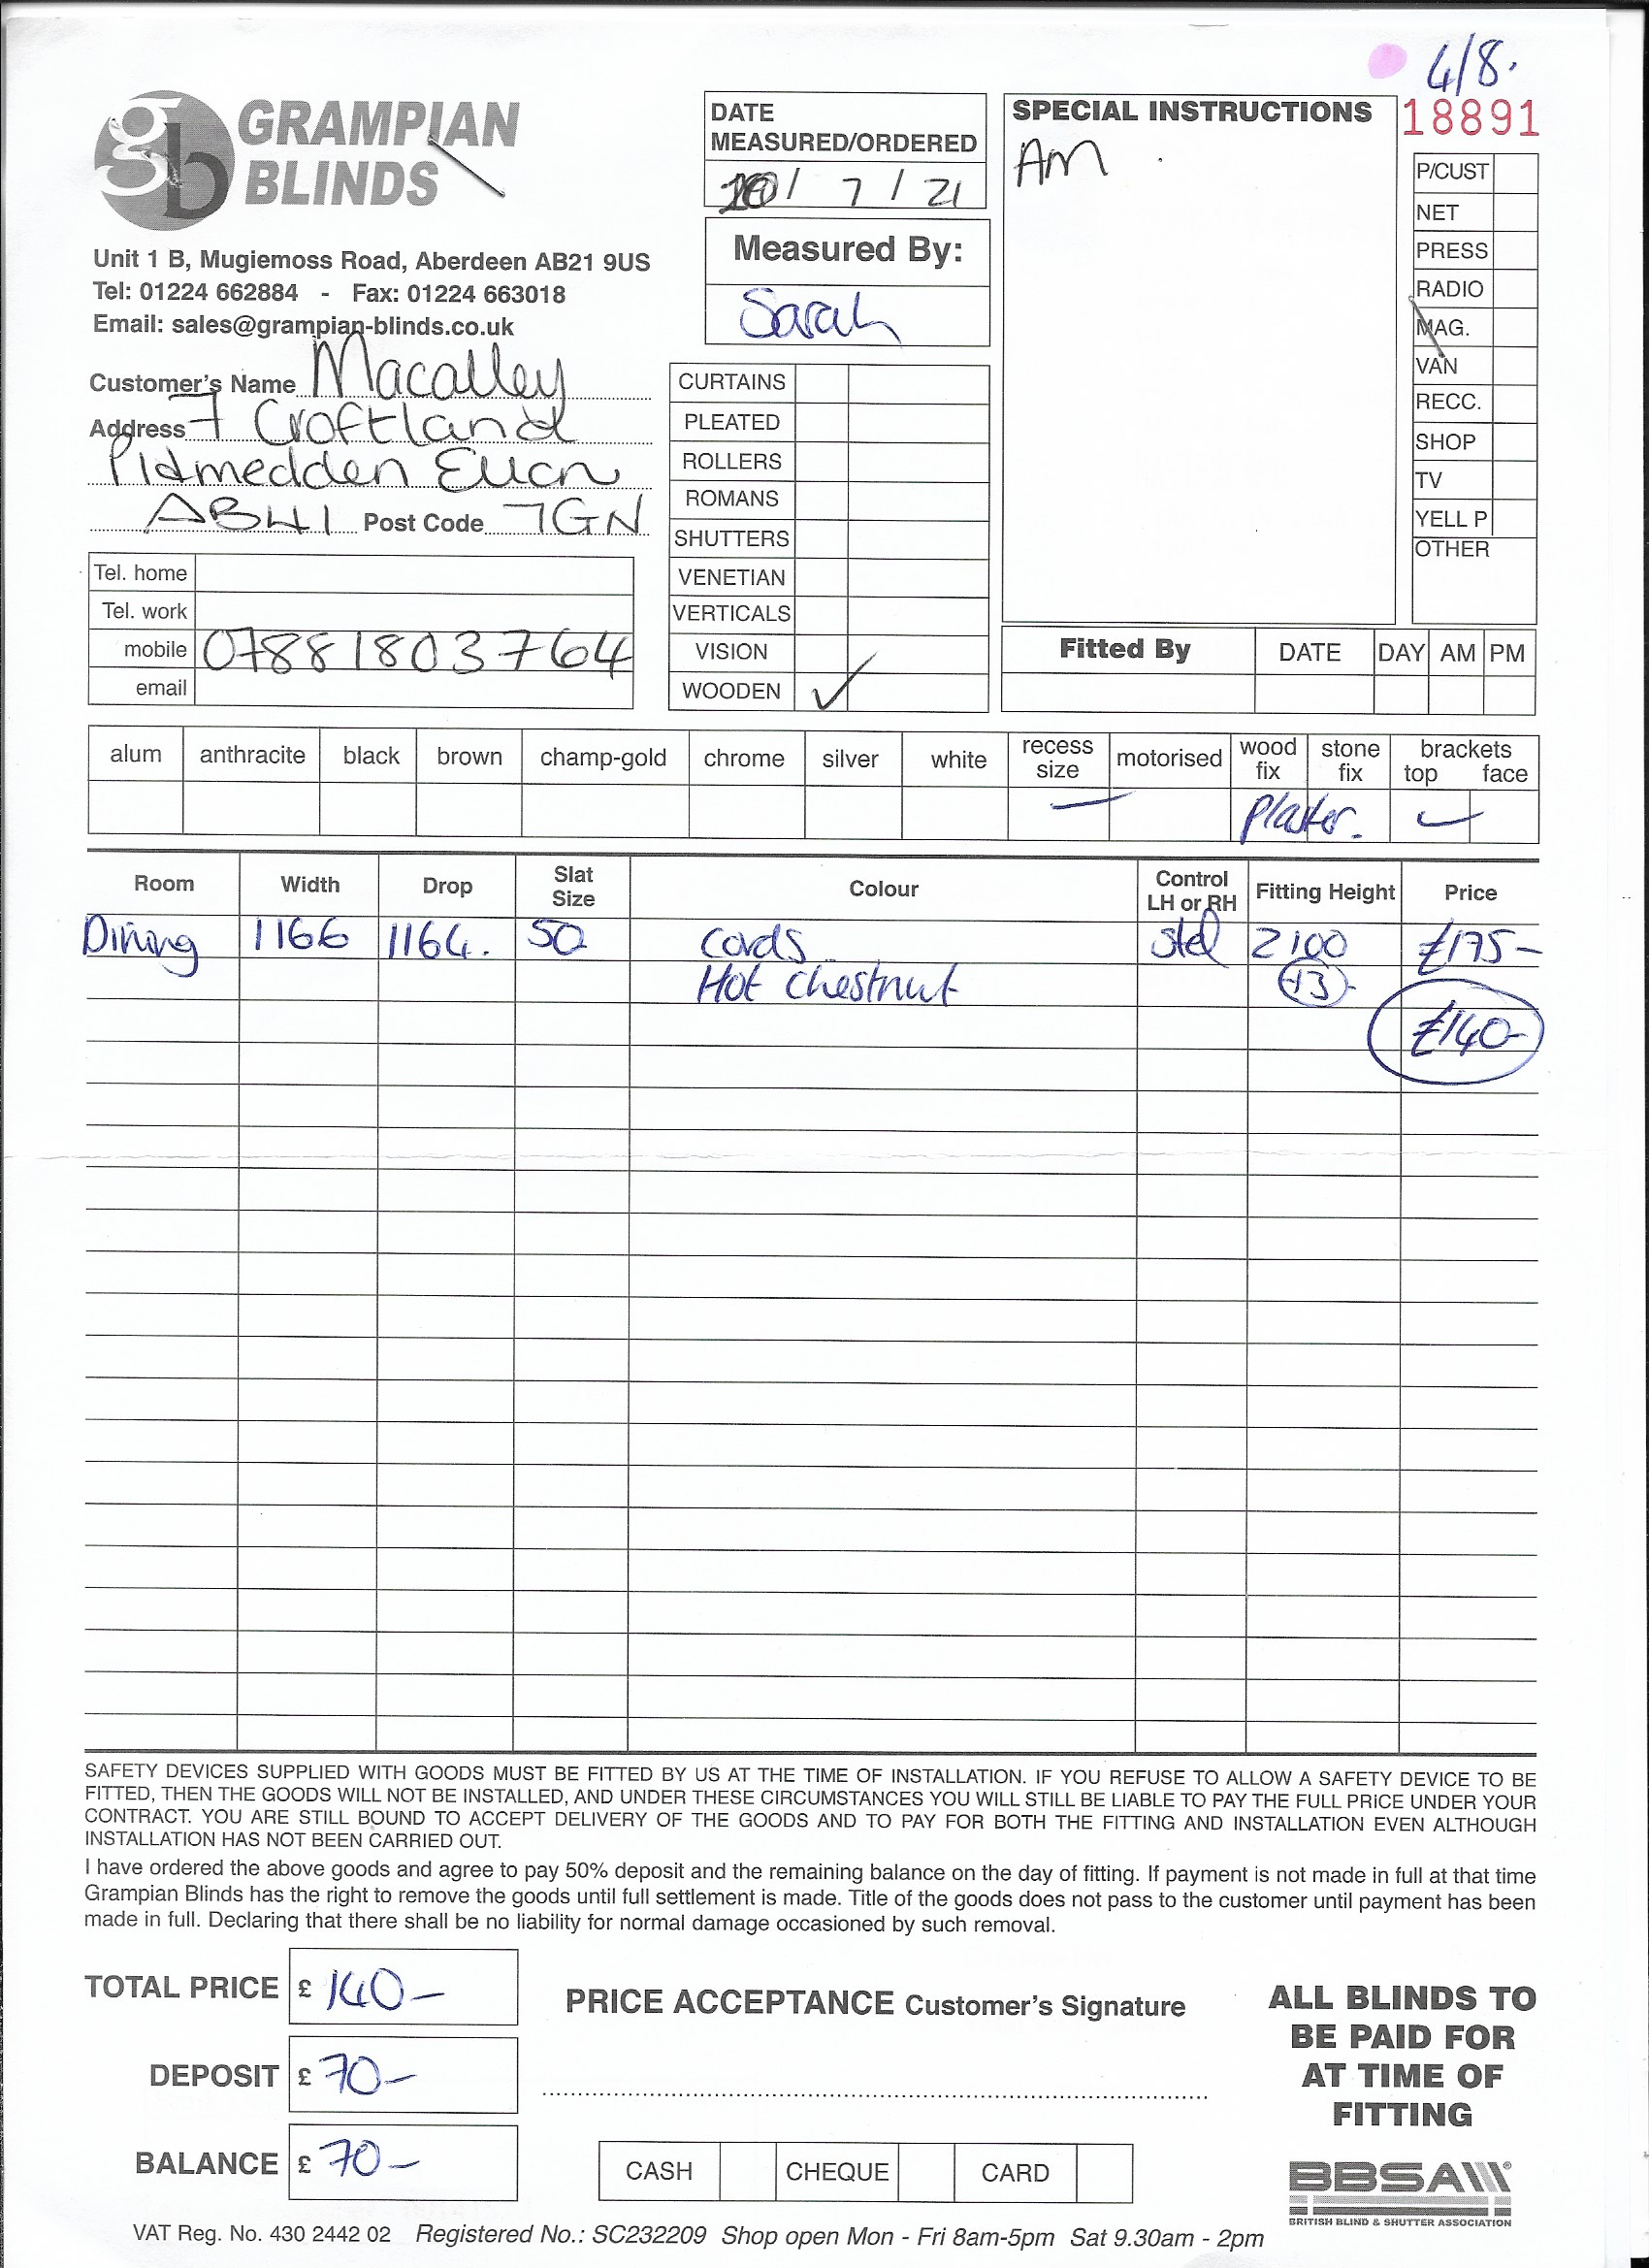 4/8.
18891
gb GRAMPIAN
BLINDS
Unit 1 B, Mugiemoss Road, Aberdeen AB21 9US
Tel: 01224 662884 - Fax: 01224 663018
Email: sales@grampian-blinds.co.uk
Customer's Name Macalley
Address 7 Croftland
Pitmedden Ellon
AB41 Post Code 7GN
Tel. home
Tel. work
mobile 07881803764
email
DATE
MEASURED/ORDERED
/ 7 / 21
Measured By:
Sarah
CURTAINS
PLEATED
ROLLERS
ROMANS
SHUTTERS
VENETIAN
VERTICALS
VISION
WOODEN ✓
SPECIAL INSTRUCTIONS
AM
P/CUST
NET
PRESS
RADIO
MAG.
VAN
RECC.
SHOP
TV
YELL P
OTHER
Fitted By DATE DAY AM PM
alum anthracite black brown champ-gold chrome silver white recess size motorised wood fix stone fix brackets top face
plaster.
Room Width Drop Slat Size Colour Control LH or RH Fitting Height Price
Dining 1166 1164. 50 cords std 2100 £175-
Hot chestnut +3-
£140-
SAFETY DEVICES SUPPLIED WITH GOODS MUST BE FITTED BY US AT THE TIME OF INSTALLATION. IF YOU REFUSE TO ALLOW A SAFETY DEVICE TO BE
FITTED, THEN THE GOODS WILL NOT BE INSTALLED, AND UNDER THESE CIRCUMSTANCES YOU WILL STILL BE LIABLE TO PAY THE FULL PRICE UNDER YOUR
CONTRACT. YOU ARE STILL BOUND TO ACCEPT DELIVERY OF THE GOODS AND TO PAY FOR BOTH THE FITTING AND INSTALLATION EVEN ALTHOUGH
INSTALLATION HAS NOT BEEN CARRIED OUT.
I have ordered the above goods and agree to pay 50% deposit and the remaining balance on the day of fitting. If payment is not made in full at that time
Grampian Blinds has the right to remove the goods until full settlement is made. Title of the goods does not pass to the customer until payment has been
made in full. Declaring that there shall be no liability for normal damage occasioned by such removal.
TOTAL PRICE £ 140-
DEPOSIT £ 70-
BALANCE £ 70-
PRICE ACCEPTANCE Customer's Signature
CASH CHEQUE CARD
ALL BLINDS TO
BE PAID FOR
AT TIME OF
FITTING
BBSA
BRITISH BLIND & SHUTTER ASSOCIATION
VAT Reg. No. 430 2442 02 Registered No.: SC232209 Shop open Mon - Fri 8am-5pm Sat 9.30am - 2pm